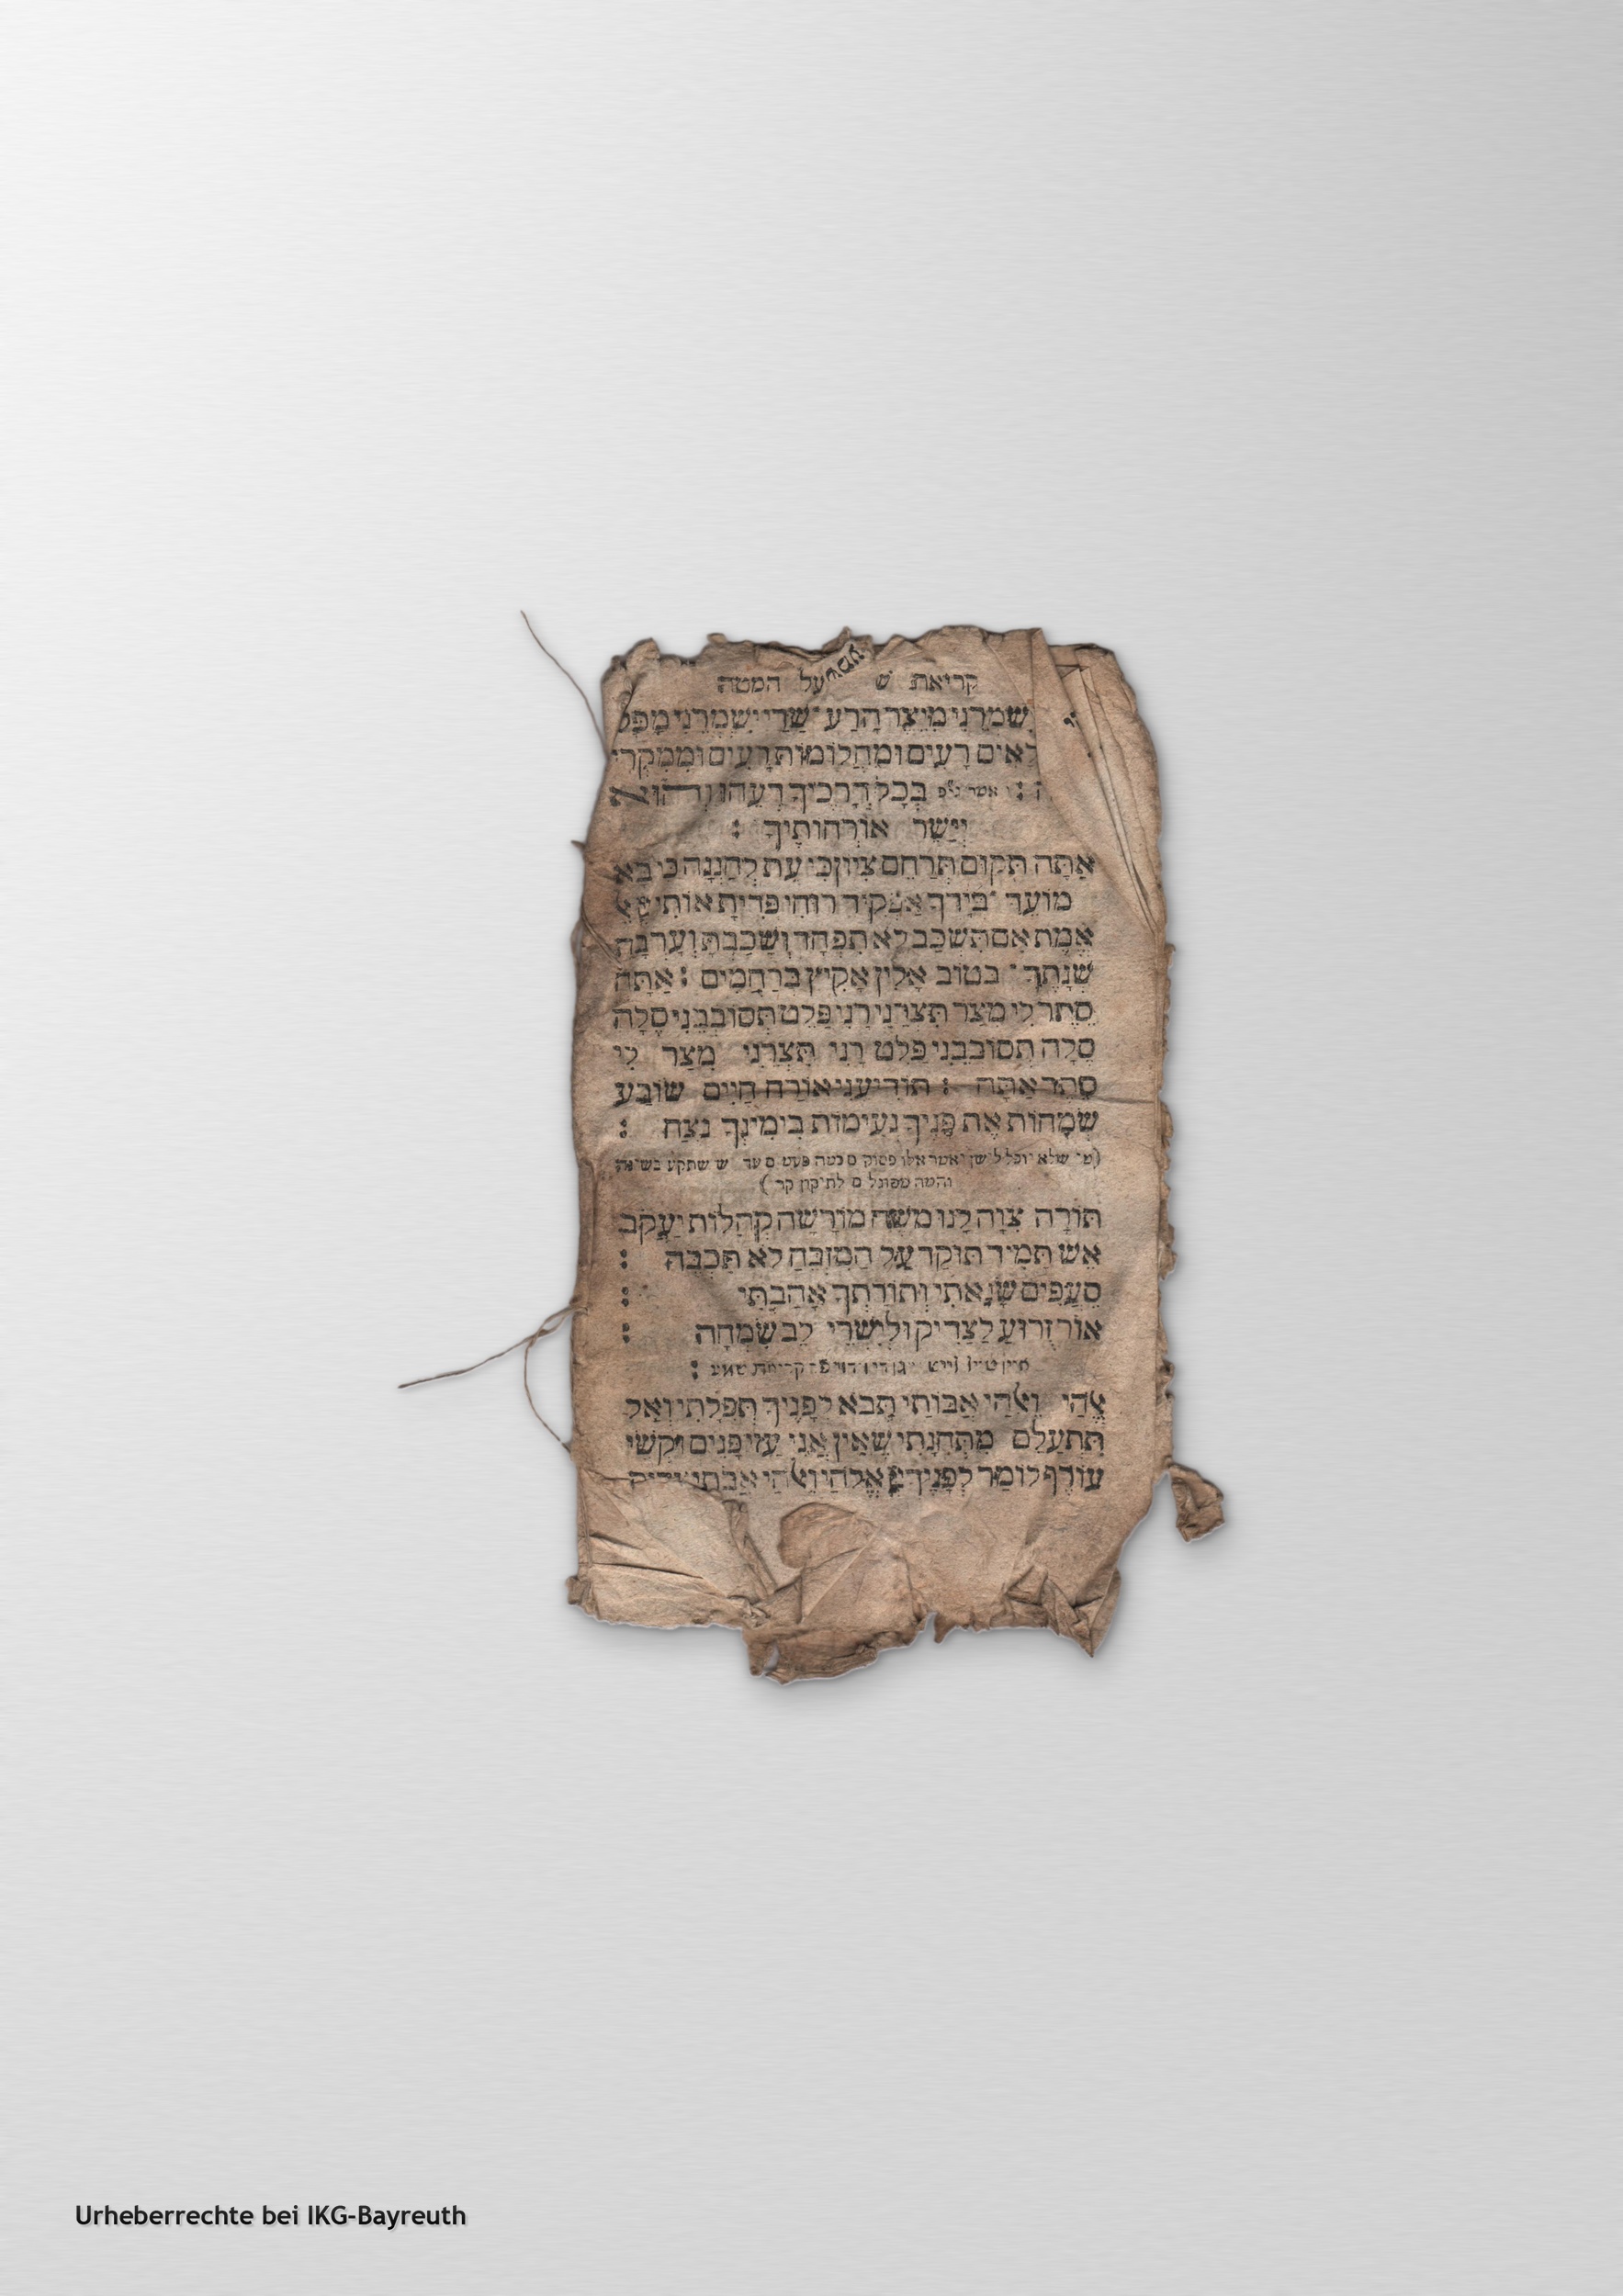 קריאת ש על המטה
ישמרני מיצר הרע שדי ישמרני מפל
לאים רעים ומחלומות רעים וממקרי
ה : בְּכָל דְּרָכֶיךָ דָעֵהוּ וְהוּא
וִיַשֵּׁר אוֹרְחוֹתֶיךָ :
אַתָּה תָקוּם תְּרַחֵם צִיּוֹן כִּי עֵת לְחֶנְנָהּ כִּי בָא
מוֹעֵד בְּיָדְךָ אַפְקִיד רוּחִי פָּדִיתָ אוֹתִי
אֱמֶת אִם תִּשְׁכַּב לֹא תִפְחָד וְשָׁכַבְתָּ וְעָרְבָה
שְׁנָתֶךָ בטוֹב אָלִין אָקִיץ בְּרַחֲמִים : אַתָּה
סֵתֶר לִי מִצַּר תִּצְּרֵנִי רָנֵּי פַלֵּט תְּסוֹבְבֵנִי סֶלָה
סֶלָה תְּסוֹבְבֵנִי פַלֵּט רָנֵּי תִּצְּרֵנִי מִצַּר לִי
סֵתֶר אַתָּה : תּוֹדִיעֵנִי אוֹרַח חַיִּים שׂוֹבַע
שְׂמָחוֹת אֶת פָּנֶיךָ נְעִימוֹת בִּימִינְךָ נֶצַח :
שלא יוכל לישן יאמר אלו פסוקים כמה פעמים עד
תּוֹרָה צִוָּה לָנוּ מֹשֶׁה מוֹרָשָׁה קְהִלּוֹת יַעֲקֹב
אֵשׁ תָּמִיד תּוּקַד עַל הַמִּזְבֵּחַ לֹא תִכְבֶּה :
סֵעֲפִים שָׂנֵאתִי וְתוֹרָתְךָ אָהָבְתִּי :
אוֹר זָרוּעַ לַצַּדִּיק וּלְיִשְׁרֵי לֵב שִׂמְחָה :
קריאת שמע :
אֱלֹהַי וֵאלֹהֵי אֲבוֹתַי תָּבֹא לְפָנֶיךָ תְּפִלָּתִי וְאַל
תִּתְעַלַּם מִתְּחִנָּתִי שֶׁאֵין אֲנִי עַזֵּי פָנִים וּקְשֵׁי
עוֹרֶף לוֹמַר לְפָנֶיךָ יְיָ אֱלֹהַי וֵאלֹהֵי אֲבֹתַי
Urheberrechte bei IKG-Bayreuth